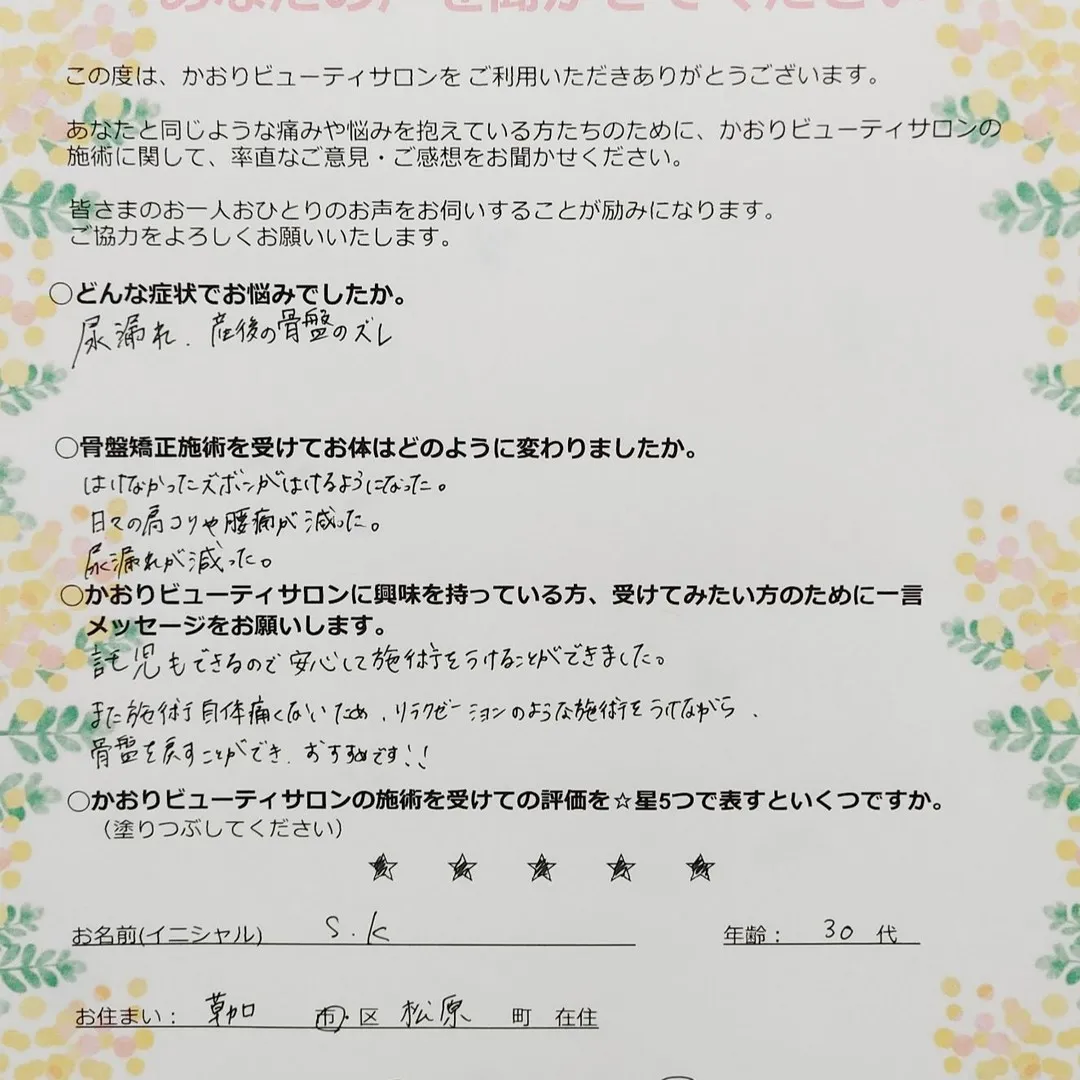 あなたの声を聞かせてください
この度は、かおりビューティサロンを ご利用いただきありがとうございます。
あなたと同じような痛みや悩みを抱えている方たちのために、かおりビューティサロンの
施術に関して、率直なご意見・ご感想をお聞かせください。
皆さまのお一人おひとりのお声をお伺いすることが励みになります。
ご協力をよろしくお願いいたします。
○どんな症状でお悩みでしたか。
尿漏れ、産後の骨盤のズレ
○骨盤矯正施術を受けてお体はどのように変わりましたか。
はけなかったズボンがはけるようになった。
日々の肩コリや腰痛が減った。
尿漏れが減った。
○かおりビューティサロンに興味を持っている方、受けてみたい方のために一言
メッセージをお願いします。
託児もできるので安心して施術をうけることができました。
また施術自体痛くないため、リラクゼーションのような施術をうけながら、
骨盤を戻すことができ、おすすめです!!
○かおりビューティサロンの施術を受けての評価を☆星5つで表すといくつですか。
（塗りつぶしてください）
★ ★ ★ ★ ★
お名前(イニシャル) S.K 年齢： 30 代
お住まい： 草加 市・区 松原 町 在住